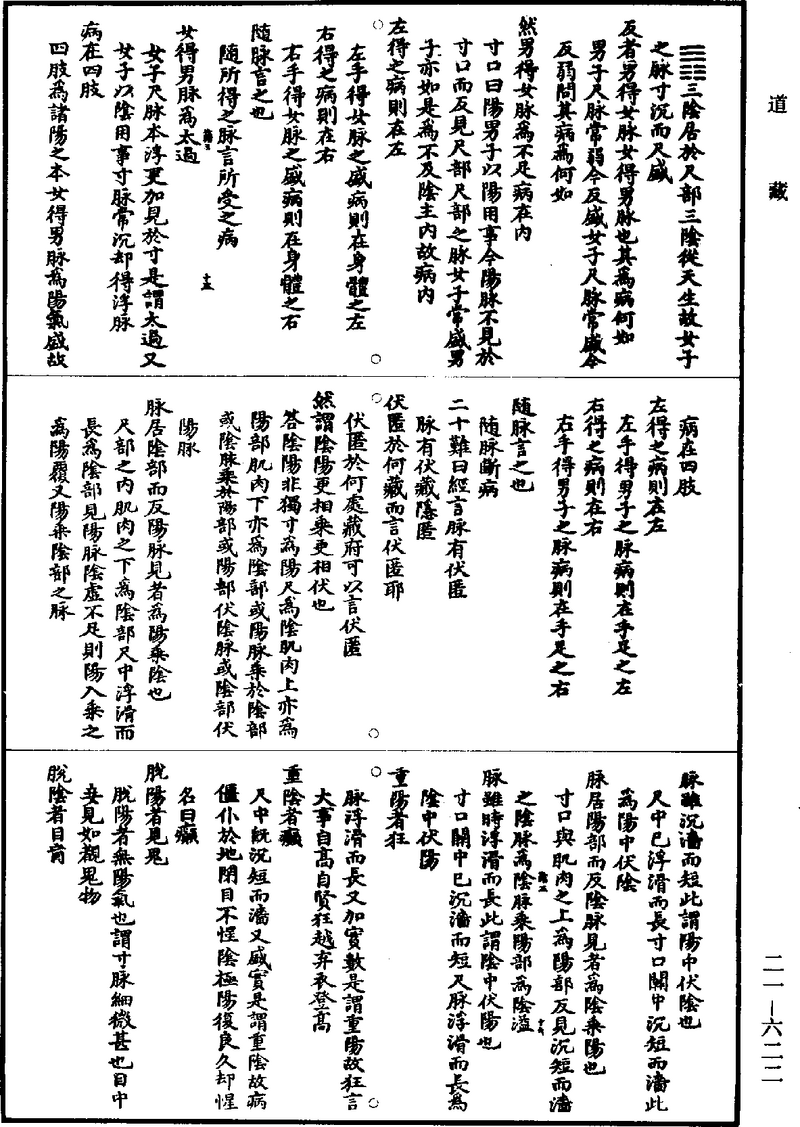 道藏
三陰居於尺部三陰從天生故女子
之脉寸沉而尺盛
反者男得女脉女得男脉也其為病何如
男子尺脉常弱今反盛女子尺脉常盛今
反弱問其病為何如
然男得女脉為不足病在內
寸口曰陽男子以陽用事今陽脉不見於
寸口而反見尺部尺部之脉女子常盛男
子亦如是為不及陰主內故病內
左得之病則在左
左手得女脉之盛病則在身體之左
右得之病則在右
右手得女脉之盛病則在身體之右
隨脉言之也
隨所得之脉言所受之病
女得男脉為太過
女子尺脉本浮更加見於寸是謂太過又
女子以陰用事寸脉常沉却得浮脉
病在四肢
四肢為諸陽之本女得男脉為陽氣盛故
病在四肢
左得之病則在左
左手得男子之脉病則在手足之左
右得之病則在右
右手得男子之脉病則在手足之右
隨脉言之也
隨脉斷病
二十難曰經言脉有伏匿
脉有伏藏隱匿
伏匿於何藏而言伏匿耶
伏匿於何處藏府可以言伏匿
然謂陰陽更相乘更相伏也
答陰陽非獨寸為陽尺為陰肌肉上亦為
陽部肌肉下亦為陰部或陽脉乘於陰部
或陰脉乘於陽部或陽部伏陰脉或陰部伏
陽脉
脉居陰部而反陽脉見者為陽乘陰也
尺部之內肌肉之下為陰部尺中浮滑而
長為陰部見陽脉陰虛不足則陽入乘之
為陽覆又陽乘陰部之脉
脉雖沉濇而短此謂陽中伏陰也
尺中已浮滑而長寸口關中沉短而濇此
為陽中伏陰
脉居陽部而反陰脉見者為陰乘陽也
寸口與肌肉之上為陽部反見沉短而濇
之陰脉為陰脉乘陽部為陰溢
脉雖時浮滑而長此謂陰中伏陽也
寸口關中已沉濇而短尺脉浮滑而長為
陰中伏陽
重陽者狂
脉浮滑而長又加實數是謂重陽故狂言
大事自高自賢狂越弃衣登高
重陰者癲
尺中旣沉短而濇又盛實是謂重陰故病
僵仆於地閉目不惺陰極陽復良久却惺
名曰癲
脫陽者見鬼
脫陽者無陽氣也謂寸脉細微甚也目中
妄見如覩鬼物
脫陰者目盲
二一－六二二